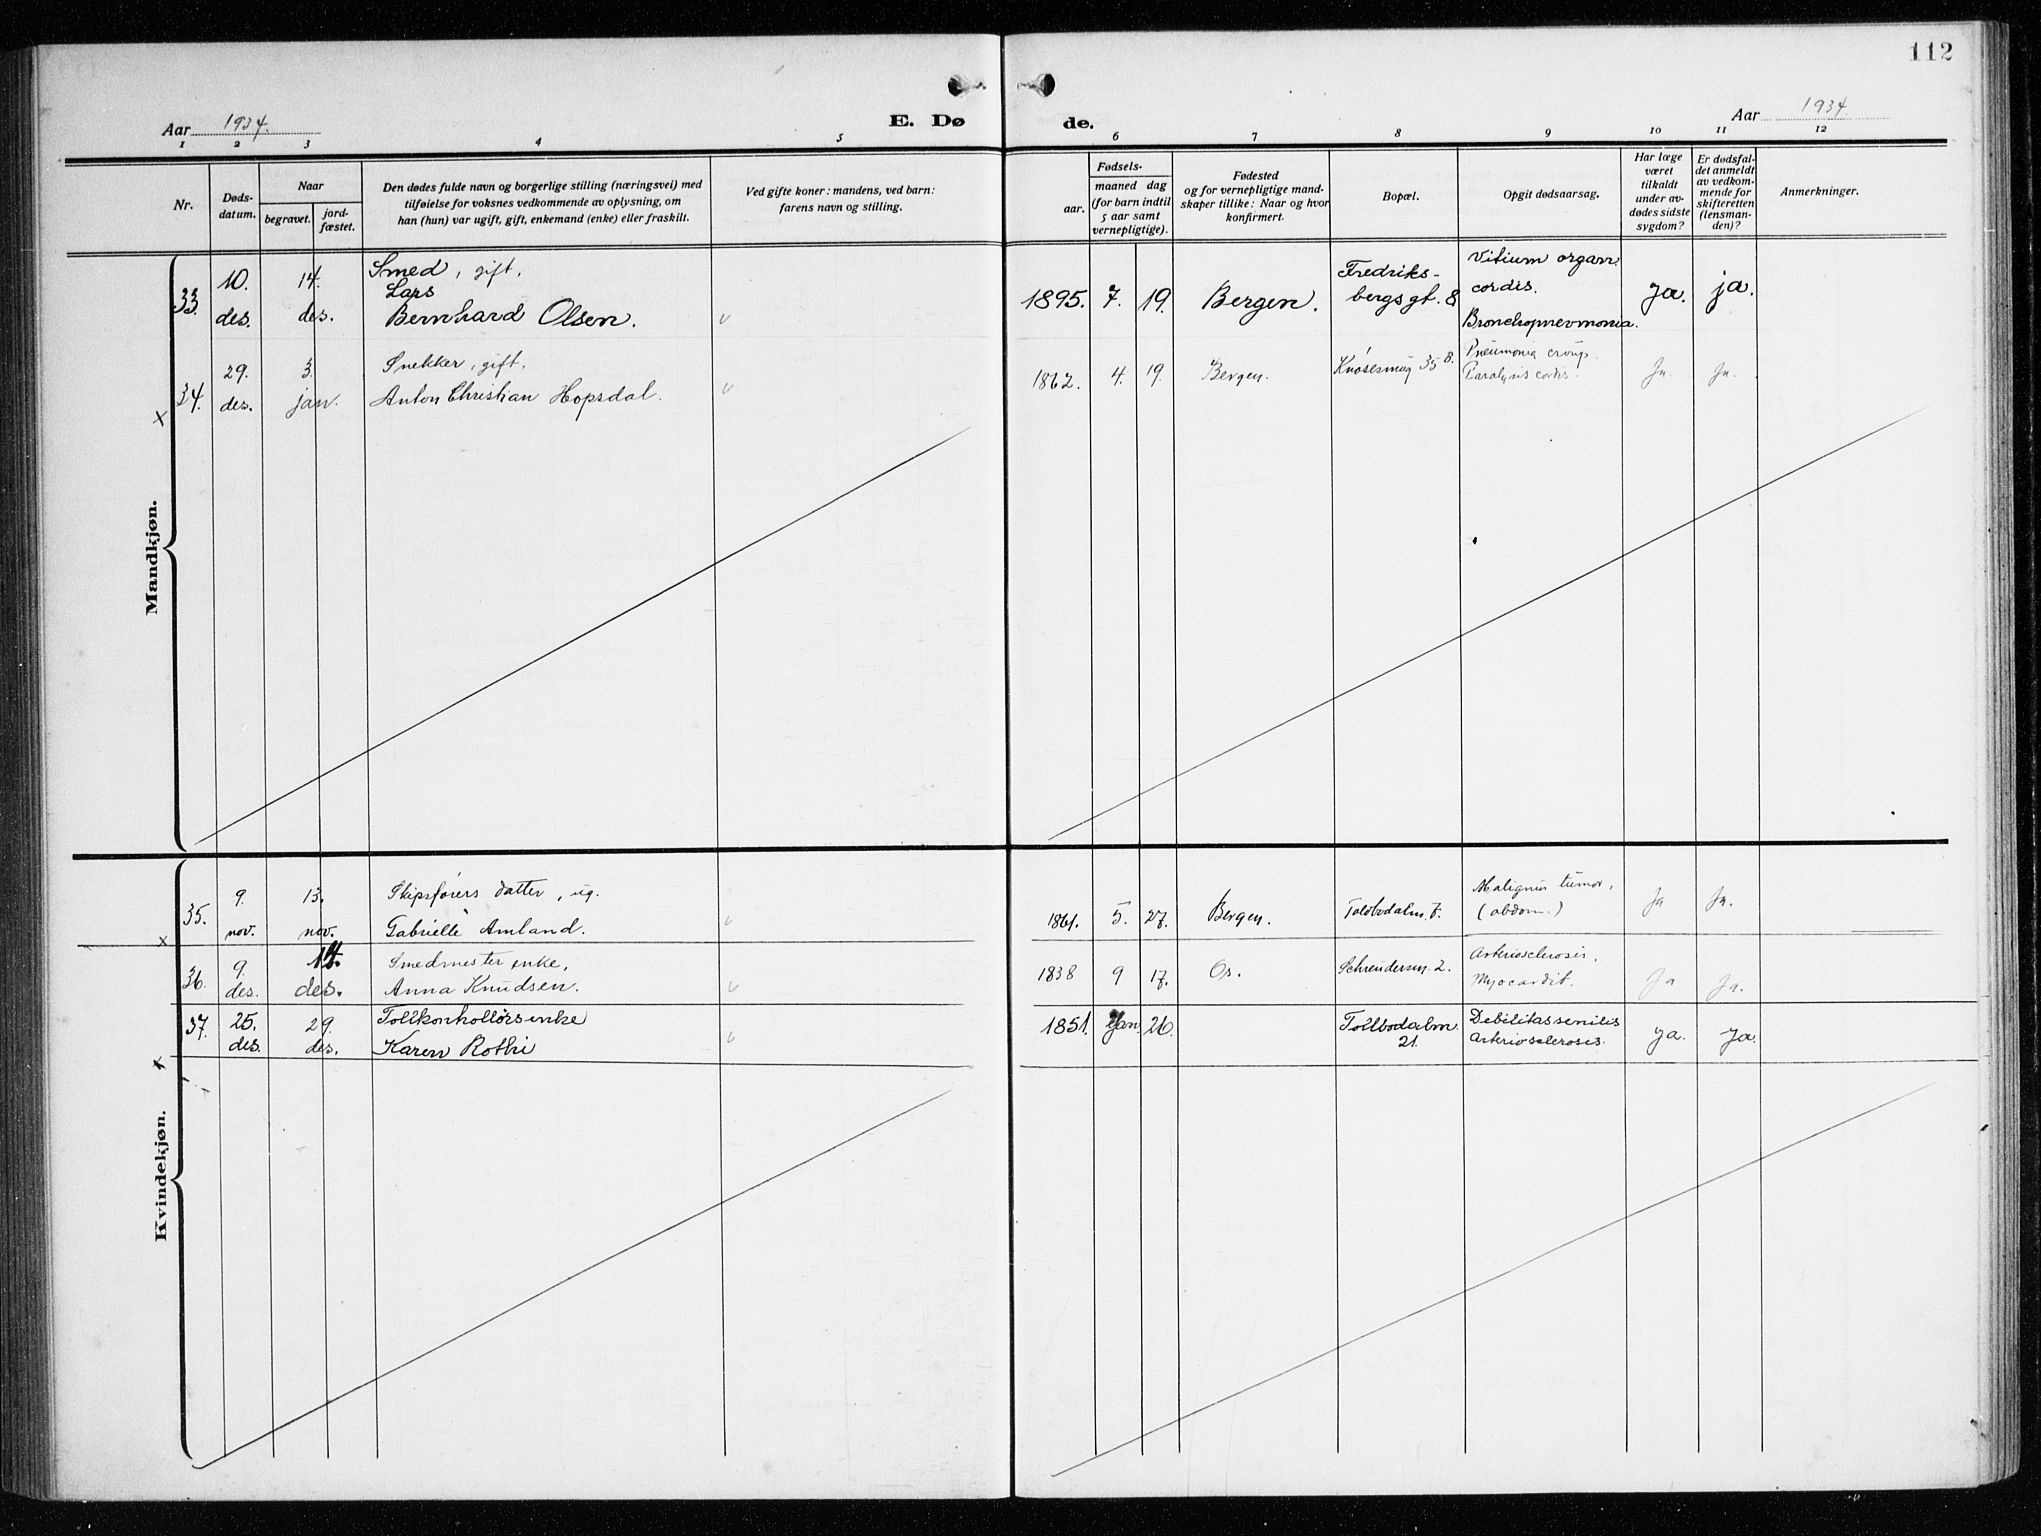 112
Aar 1934.
E. Dø
de.
Aar 1934
1 2 3 4 5 6 7 8 9 10 11 12
Nr.
Døds-
datum.
Naar
begravet.
jord-
fæstet.
Den dødes fulde navn og borgerlige stilling (næringsvei) med
tilføielse for voksnes vedkommende av oplysning, om
han (hun) var ugift, gift, enkemand (enke) eller fraskilt.
Ved gifte koner: mandens, ved barn:
farens navn og stilling.
Fødsels-
aar.
maaned dag
(for barn indtil
5 aar samt
vernepligtige).
Fødested
og for vernepligtige mand-
skaper tillike: Naar og hvor
konfirmert.
Bopæl.
Opgit dødsaarsag.
Har læge
været
tilkaldt
under av-
dødes sidste
sygdom?
Er dødsfal-
det anmeldt
av vedkom-
mende for
skifteretten
(lensman-
den)?
Anmerkninger.
Mandkjøn.
33.
10.
des.
14.
des.
Smed, gift.
Lars
Bernhard Olsen.
1895. 7. 19.
Bergen.
Fredriks-
bergsgt. 8
Vitium organ.
cordis.
Bronchopnevmonia.
Ja.
ja.
34.
29.
des.
3.
jan.
Snekker, gift.
Anton Christian Hopsdal.
1862. 4. 19.
Bergen.
Knøsesmug 35 B.
Pneumonia croup.
Paralysis cordis.
Ja.
Ja.
Kvindekjøn.
35.
9.
nov.
13.
nov.
Skipsførers datter, ug.
Gabrielle Amland.
1861. 5. 27.
Bergen.
Toldbodalm. 7.
Malignus tumor,
(abdom.)
Ja
Ja.
36.
9.
des.
14.
des.
Smedmester enke,
Anna Knudsen.
1838 9 17.
Os.
Schreudersm. 2.
Arteriosclerosis,
Myocardit.
Ja
Ja.
37.
25.
des.
29.
des.
Tollkontrollørsenke
Karen Rothe
1851. Jan. 26.
Tollbodalm
21.
Debilitas senilis
Arteriosclerosis.
Ja.
Ja.